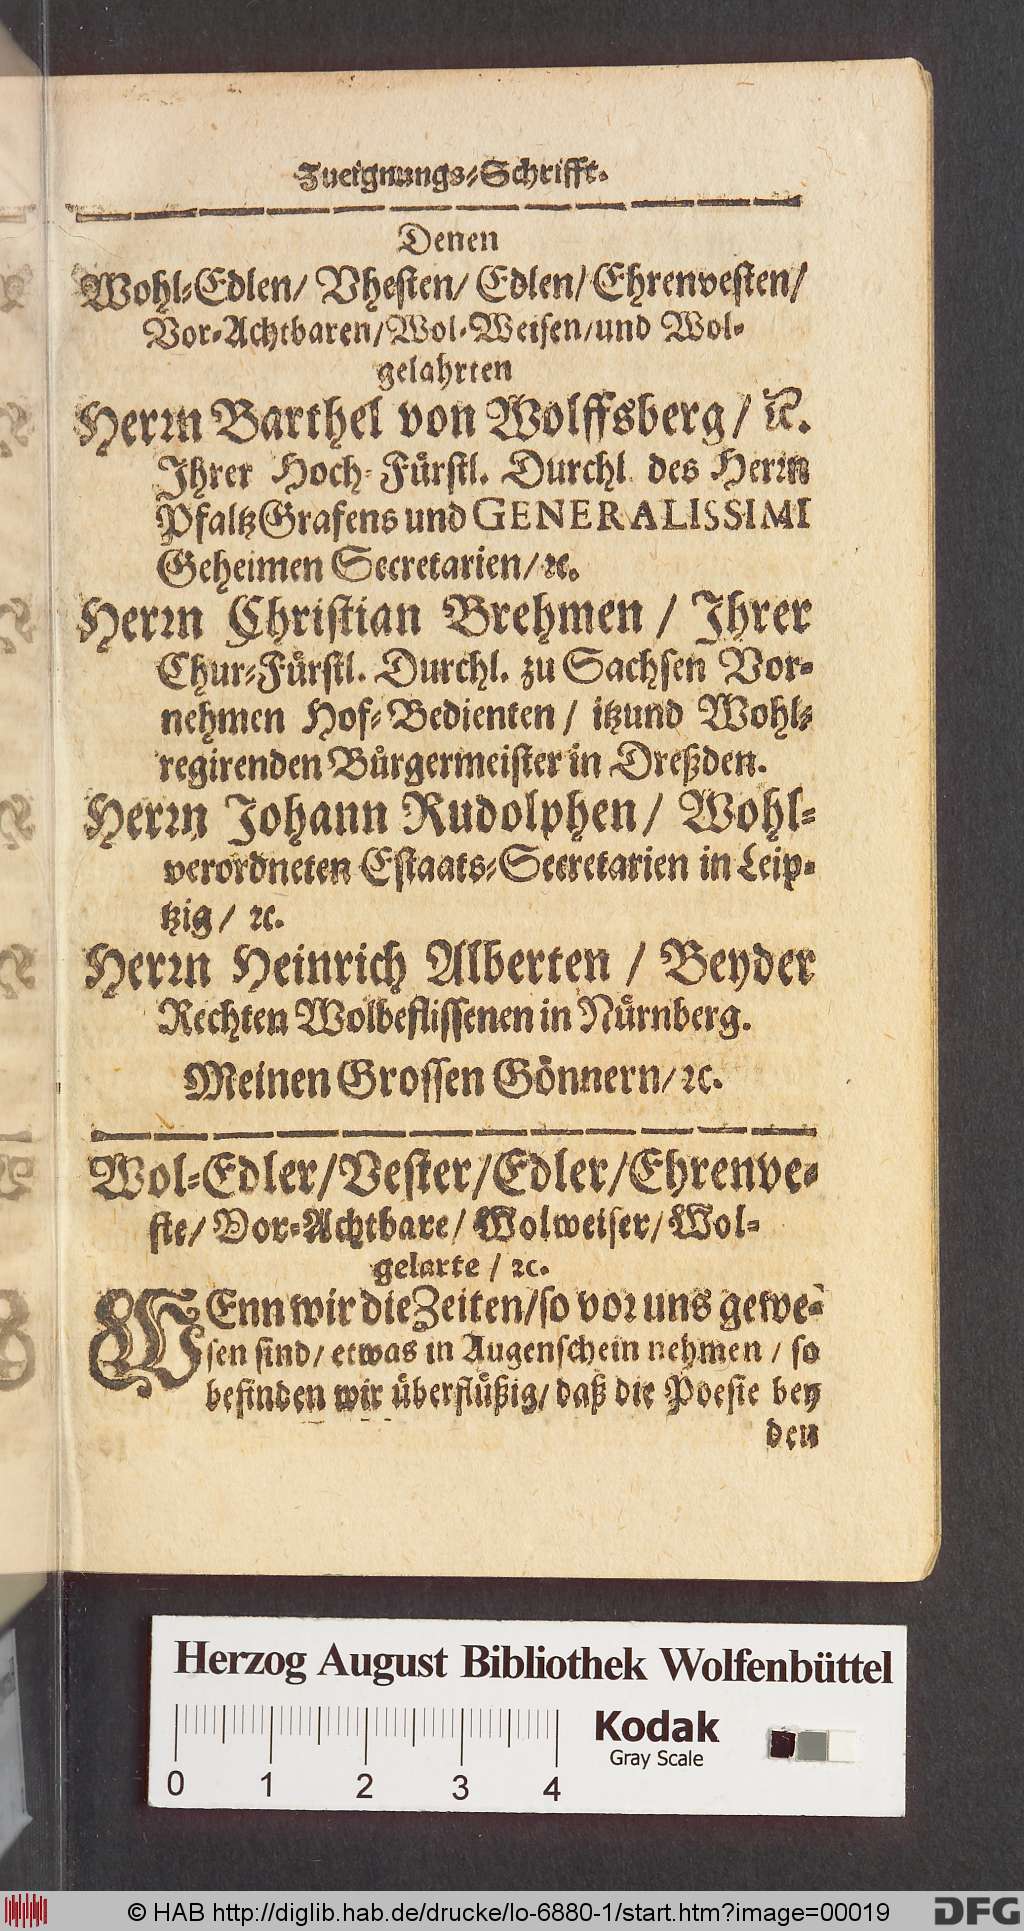 Zueignungs-Schrifft.
Denen
Wohl-Edlen/ Vhesten/ Edlen/ Ehrenvesten/
Vor-Achtbaren/ Wol-Weisen/ und Wol-
gelahrten
Herꝛn Barthel von Wolffsberg/ ꝛc.
Ihrer Hoch-Fuͤrstl. Durchl. des Herꝛn
PfaltzGrafens und GENERALISSIMI
Geheimen Secretarien/ ꝛc.
Herꝛn Christian Brehmen/ Ihrer
Chur-Fuͤrstl. Durchl. zu Sachsen Vor-
nehmen Hof-Bedienten/ itzund Wohl-
regirenden Buͤrgermeister in Dreßden.
Herꝛn Johann Rudolphen/ Wohl-
verordneten Estaats-Secretarien in Leip-
tzig/ ꝛc.
Herꝛn Heinrich Alberten/ Beyder
Rechten Wolbeflissenen in Nuͤrnberg.
Meinen Grossen Goͤnnern/ ꝛc.
Wol-Edler/ Vester/ Edler/ Ehrenve-
ste/ Vor-Achtbare/ Wolweiser/ Wol-
gelarte/ ꝛc.
WEnn wir die Zeiten/ so voꝛ uns gewe-
sen sind/ etwas in Augenschein nehmen/ so
befinden wir uͤberfluͤßig/ daß die Poesie bey
den
Herzog August Bibliothek Wolfenbüttel
Kodak
Gray Scale
0 1 2 3 4
© HAB http://diglib.hab.de/drucke/lo-6880-1/start.htm?image=00019
DFG